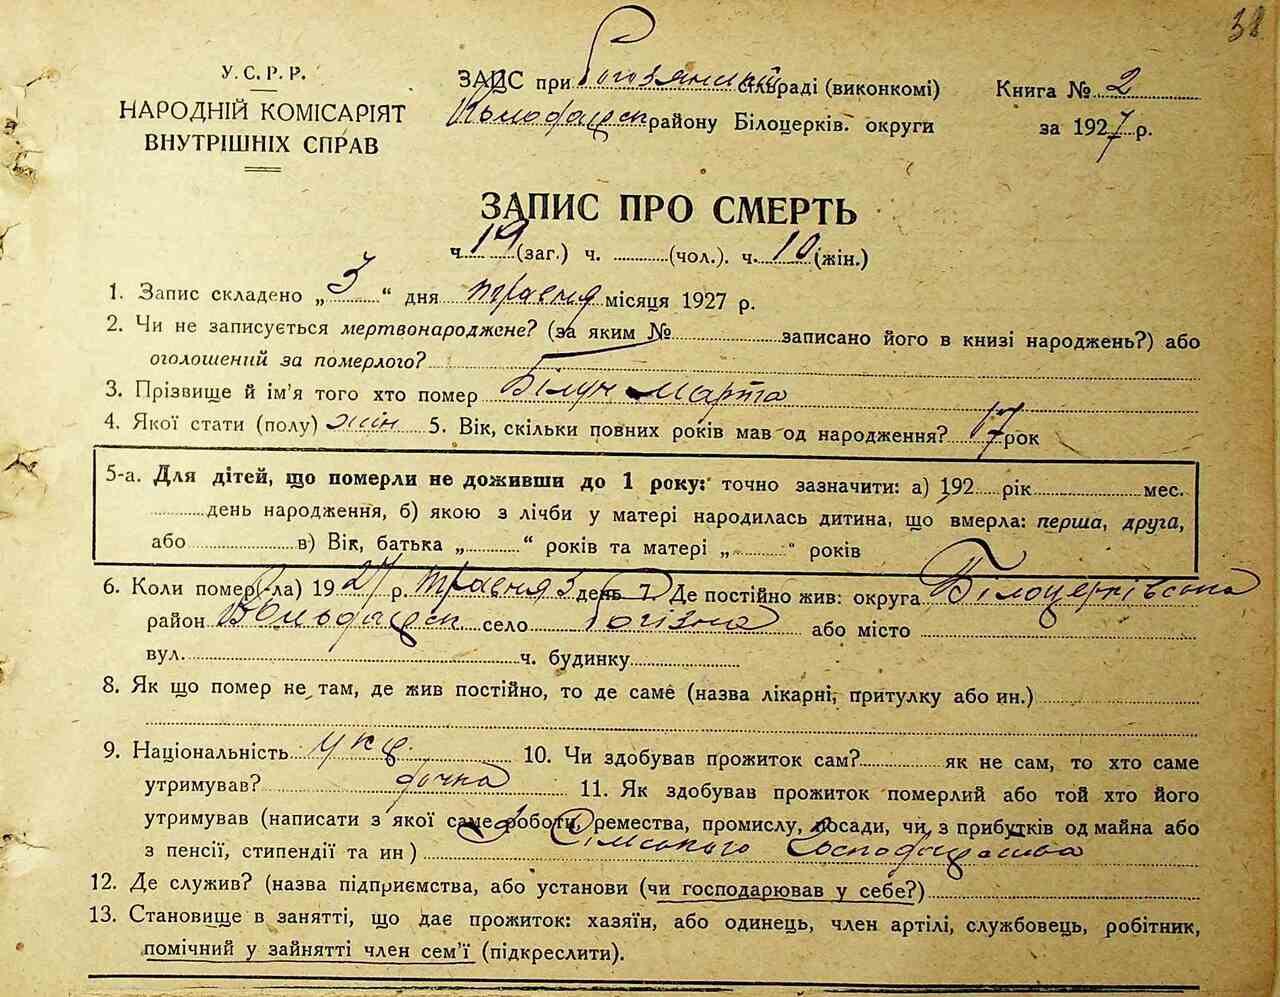 38
У.С.Р.Р.
НАРОДНІЙ КОМІСАРІЯТ
ВНУТРІШНІХ СПРАВ
ЗАПИС при сільраді (виконкомі)
району Білоцерків. округи
Книга № 2
за 1927 р.
ЗАПИС ПРО СМЕРТЬ
ч. 19 (заг.) ч. (чол.). ч. 10 (жін.)
1. Запис складено „3“ дня травня місяця 1927 р.
2. Чи не записується мертвонароджене? (за яким № записано його в книзі народжень?) або
оголошений за померлого?
3. Прізвище й ім'я того хто помер Білун Марта
4. Якої стати (полу) жін 5. Вік, скільки повних років мав од народження? 17 рок
5-а. Для дітей, що померли не доживши до 1 року: точно зазначити: а) 192 рік мес.
день народження, б) якою з лічби у матері народилась дитина, що вмерла: перша, друга,
або в) Вік, батька „ “ років та матері „ “ років
6. Коли помер(-ла) 1927 р. травня 3 день 7. Де постійно жив: округа Білоцерківська
район село або місто
вул. ч. будинку
8. Як що помер не там, де жив постійно, то де саме (назва лікарні, притулку або ин.)
9. Національність укр 10. Чи здобував прожиток сам? як не сам, то хто саме
утримував? дочка 11. Як здобував прожиток померлий або той хто його
утримував (написати з якої саме роботи, ремества, промислу, посади, чи з прибутків од майна або
з пенсії, стипендії та ин) з сільського господарства
12. Де служив? (назва підприємства, або установи (чи господарював у себе?)
13. Становище в занятті, що дає прожиток: хазяїн, або одинець, член артілі, службовець, робітник,
помічний у зайнятті член сем'ї (підкреслити).